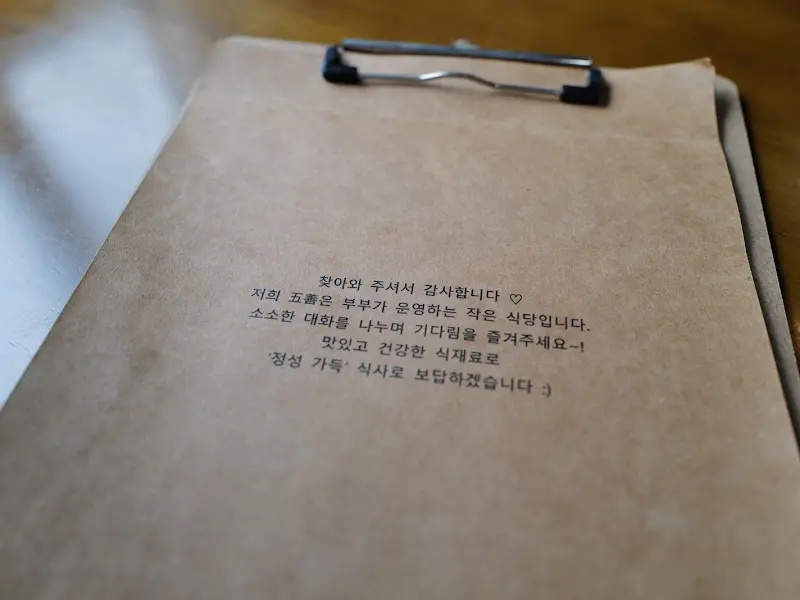 찾아와 주셔서 감사합니다 ♡
저희 五善은 부부가 운영하는 작은 식당입니다.
소소한 대화를 나누며 기다림을 즐겨주세요~!
맛있고 건강한 식재료로
'정성 가득' 식사로 보답하겠습니다 :)